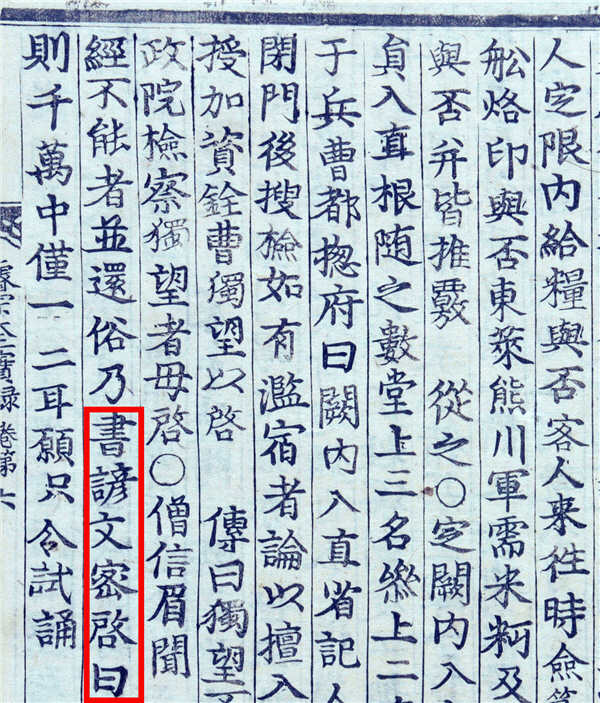 人㝎限内給糧與否客人来徃時
舩烙印與否東萊熊川軍需米及
與否并皆推覈 從之○㝎闕内入
貟入直根随之數堂上三名上二
于兵曹都摠府曰闕内入直省記人
閉門後搜撿如有濫宿者論以擅入
授加資銓曹獨望以啓 傳曰獨望
政院檢察獨望者毋啓○僧信眉聞
經不能者並還俗乃書諺文密啓曰
則千萬中僅一二耳願只令試誦
睿宗大王實録卷第六